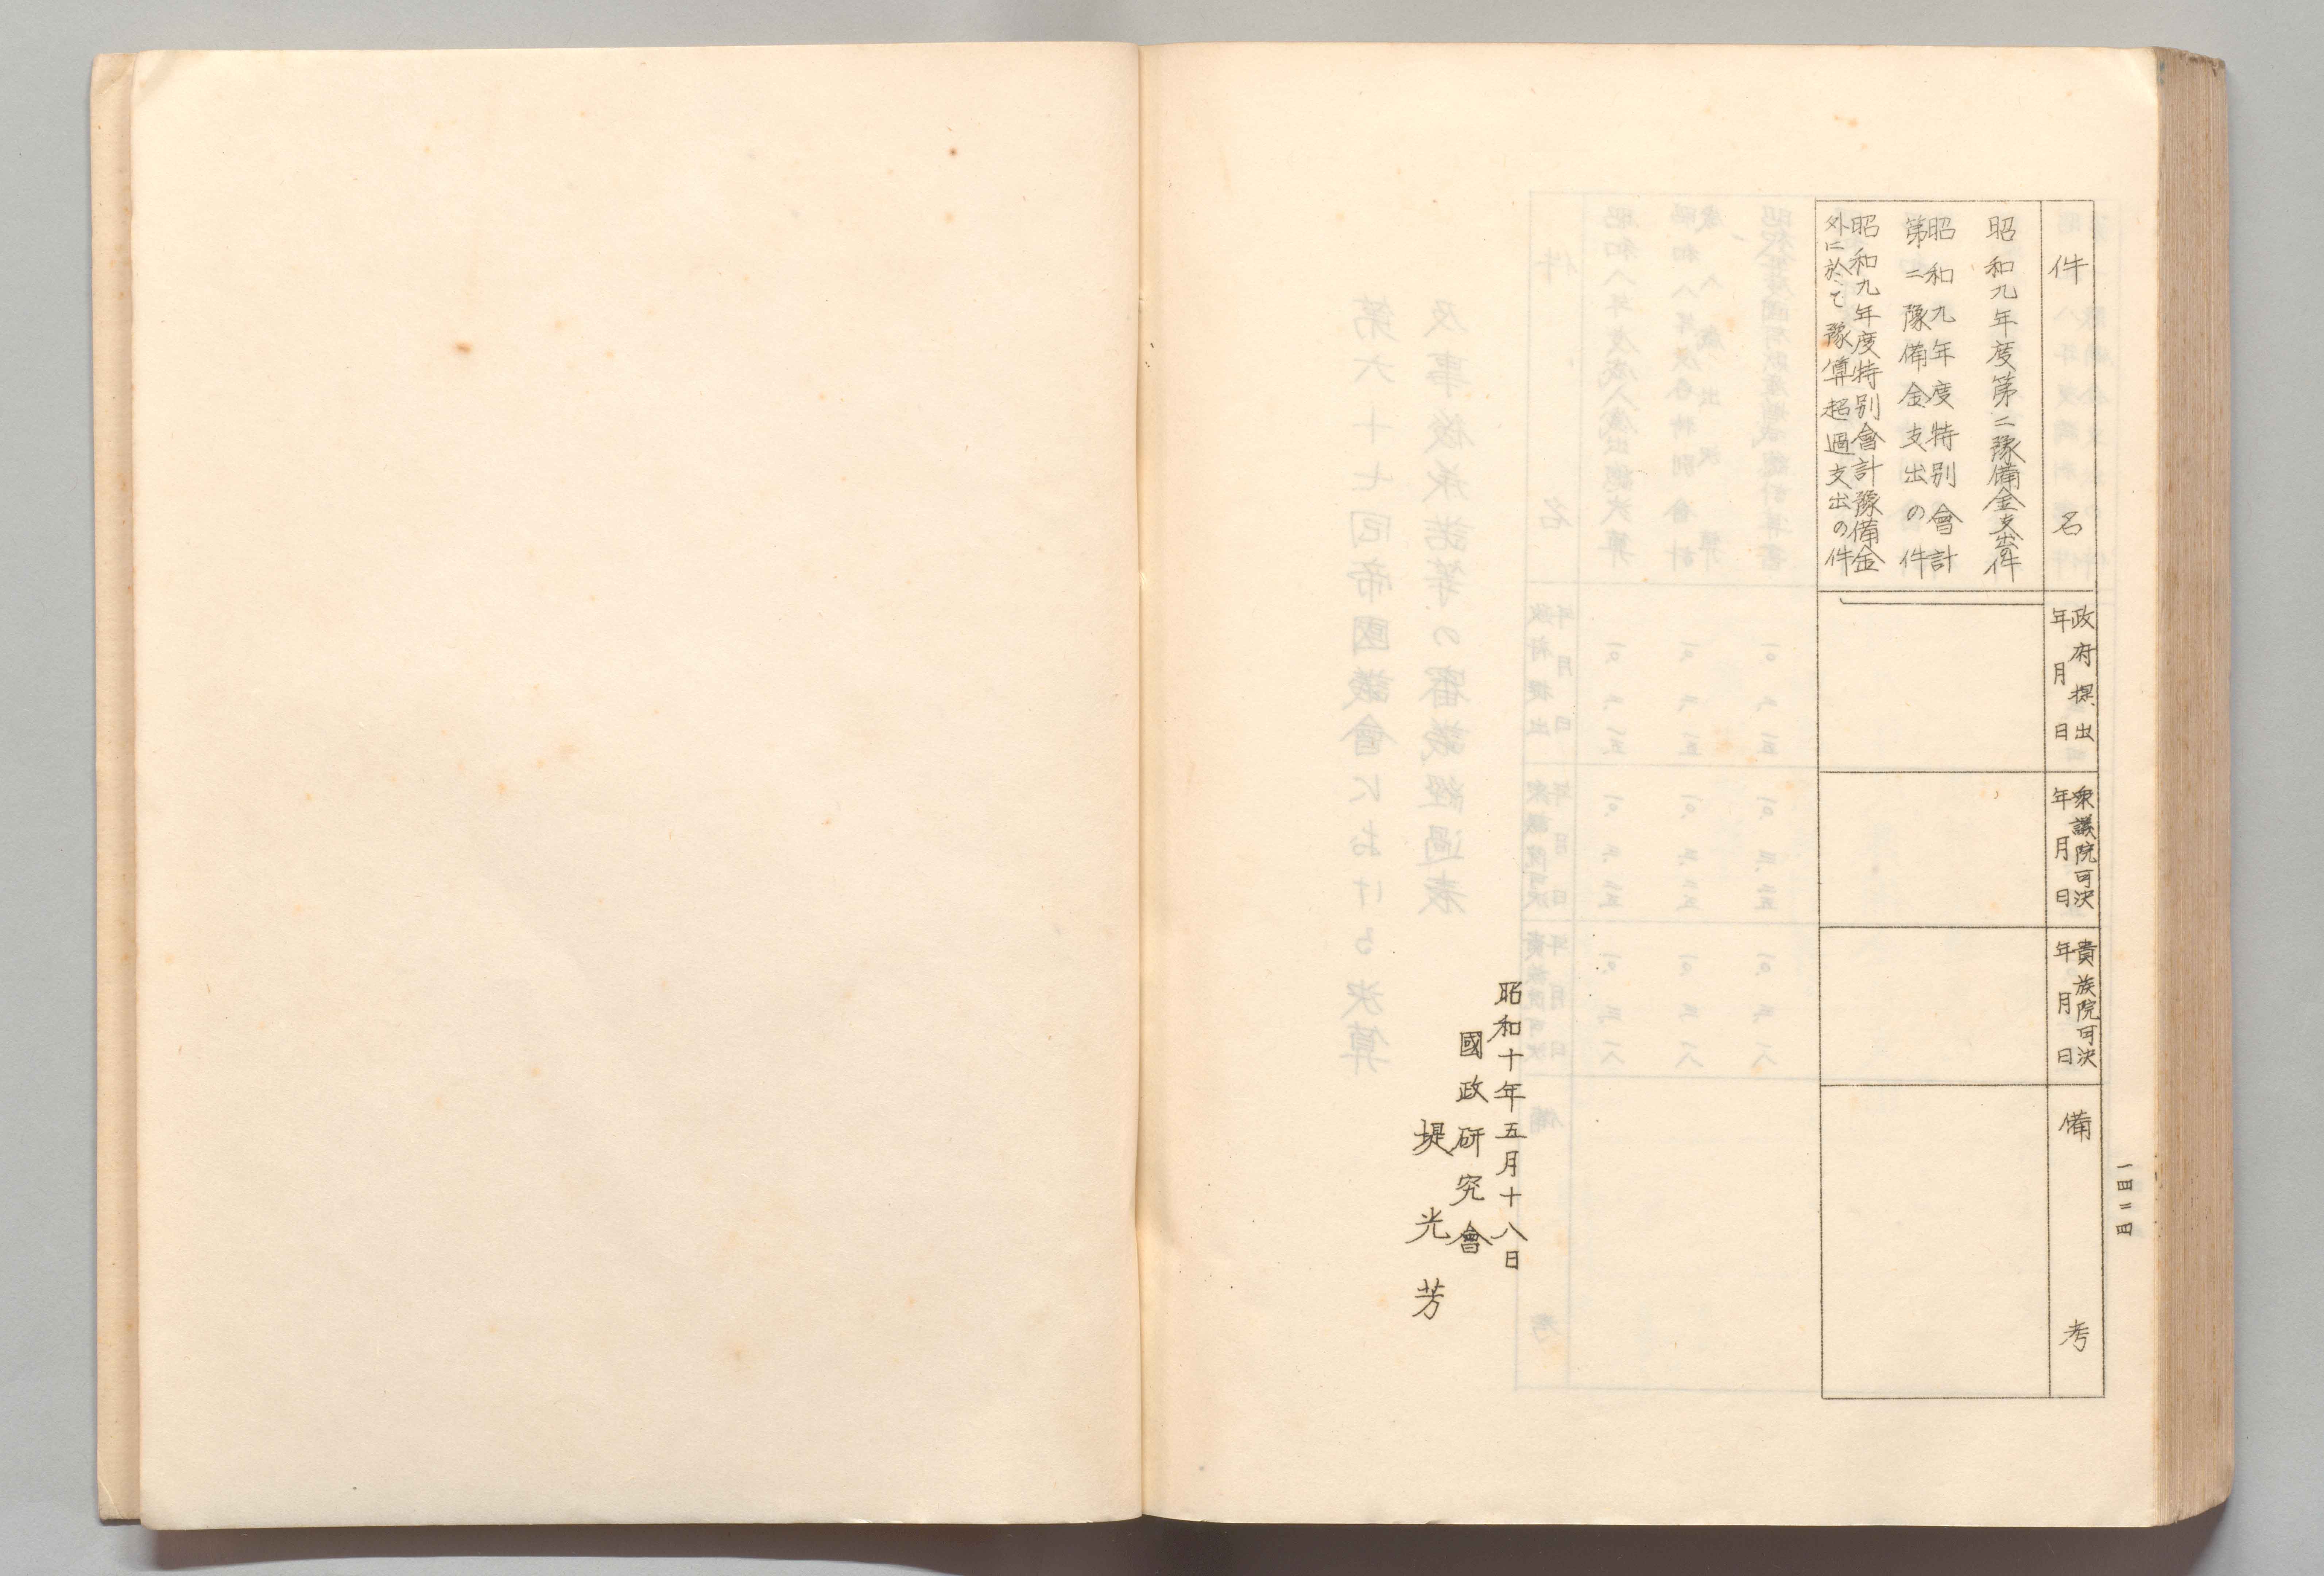 一四二四
件名
政府提出
年月日
衆議院可決
年月日
貴族院可決
年月日
備考
昭和九年度第二豫備金支出の件
昭和九年度特別會計
第二豫備金支出の件
昭和九年度特別會計豫備金
外に於て豫算超過支出の件
昭和十年五月十八日
國政研究會
堤光芳